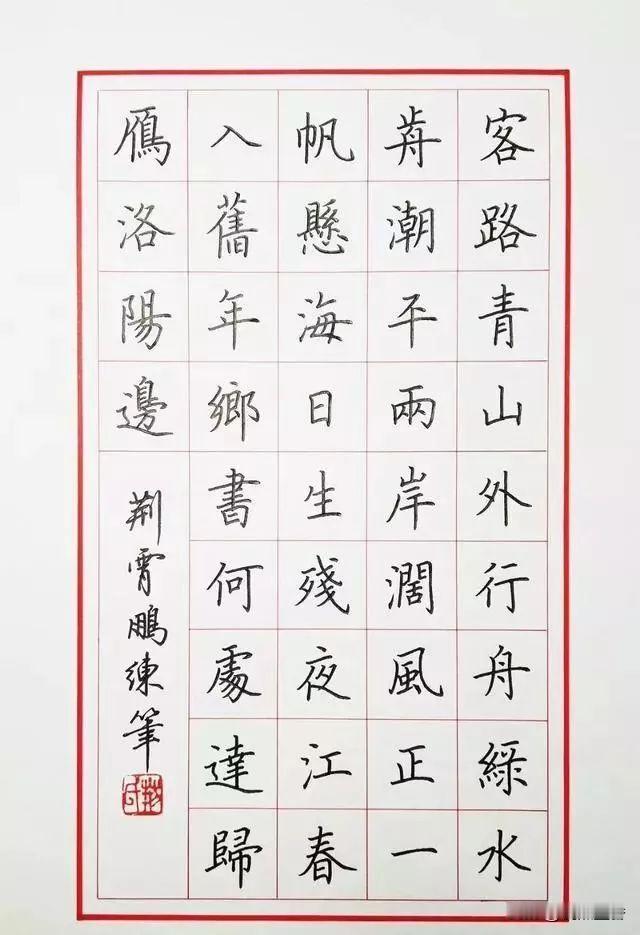 客路青山外行舟綠水
歬潮平兩岸濶風正一
帆懸海日生殘夜江春
入舊年鄉書何處達歸
鴈洛陽邊
荆霄鵬練筆